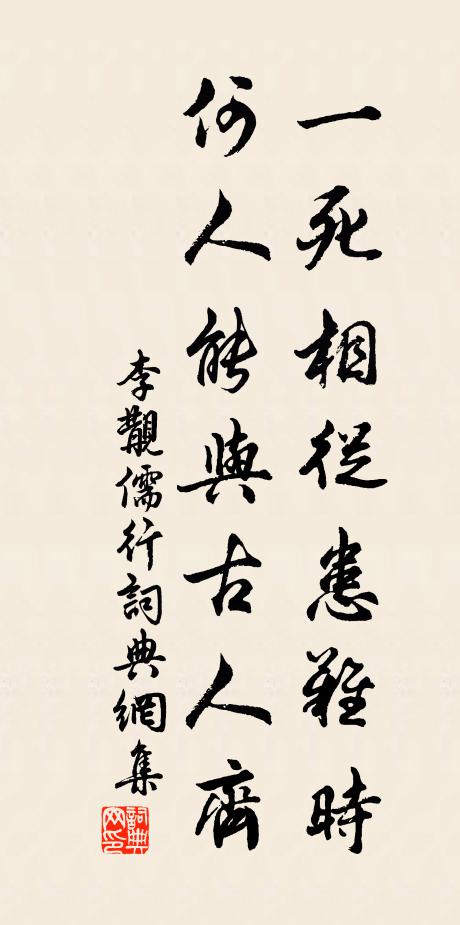 一死相從患難時
何人能與古人齊
李覯儒行詞典網集
詞典網印